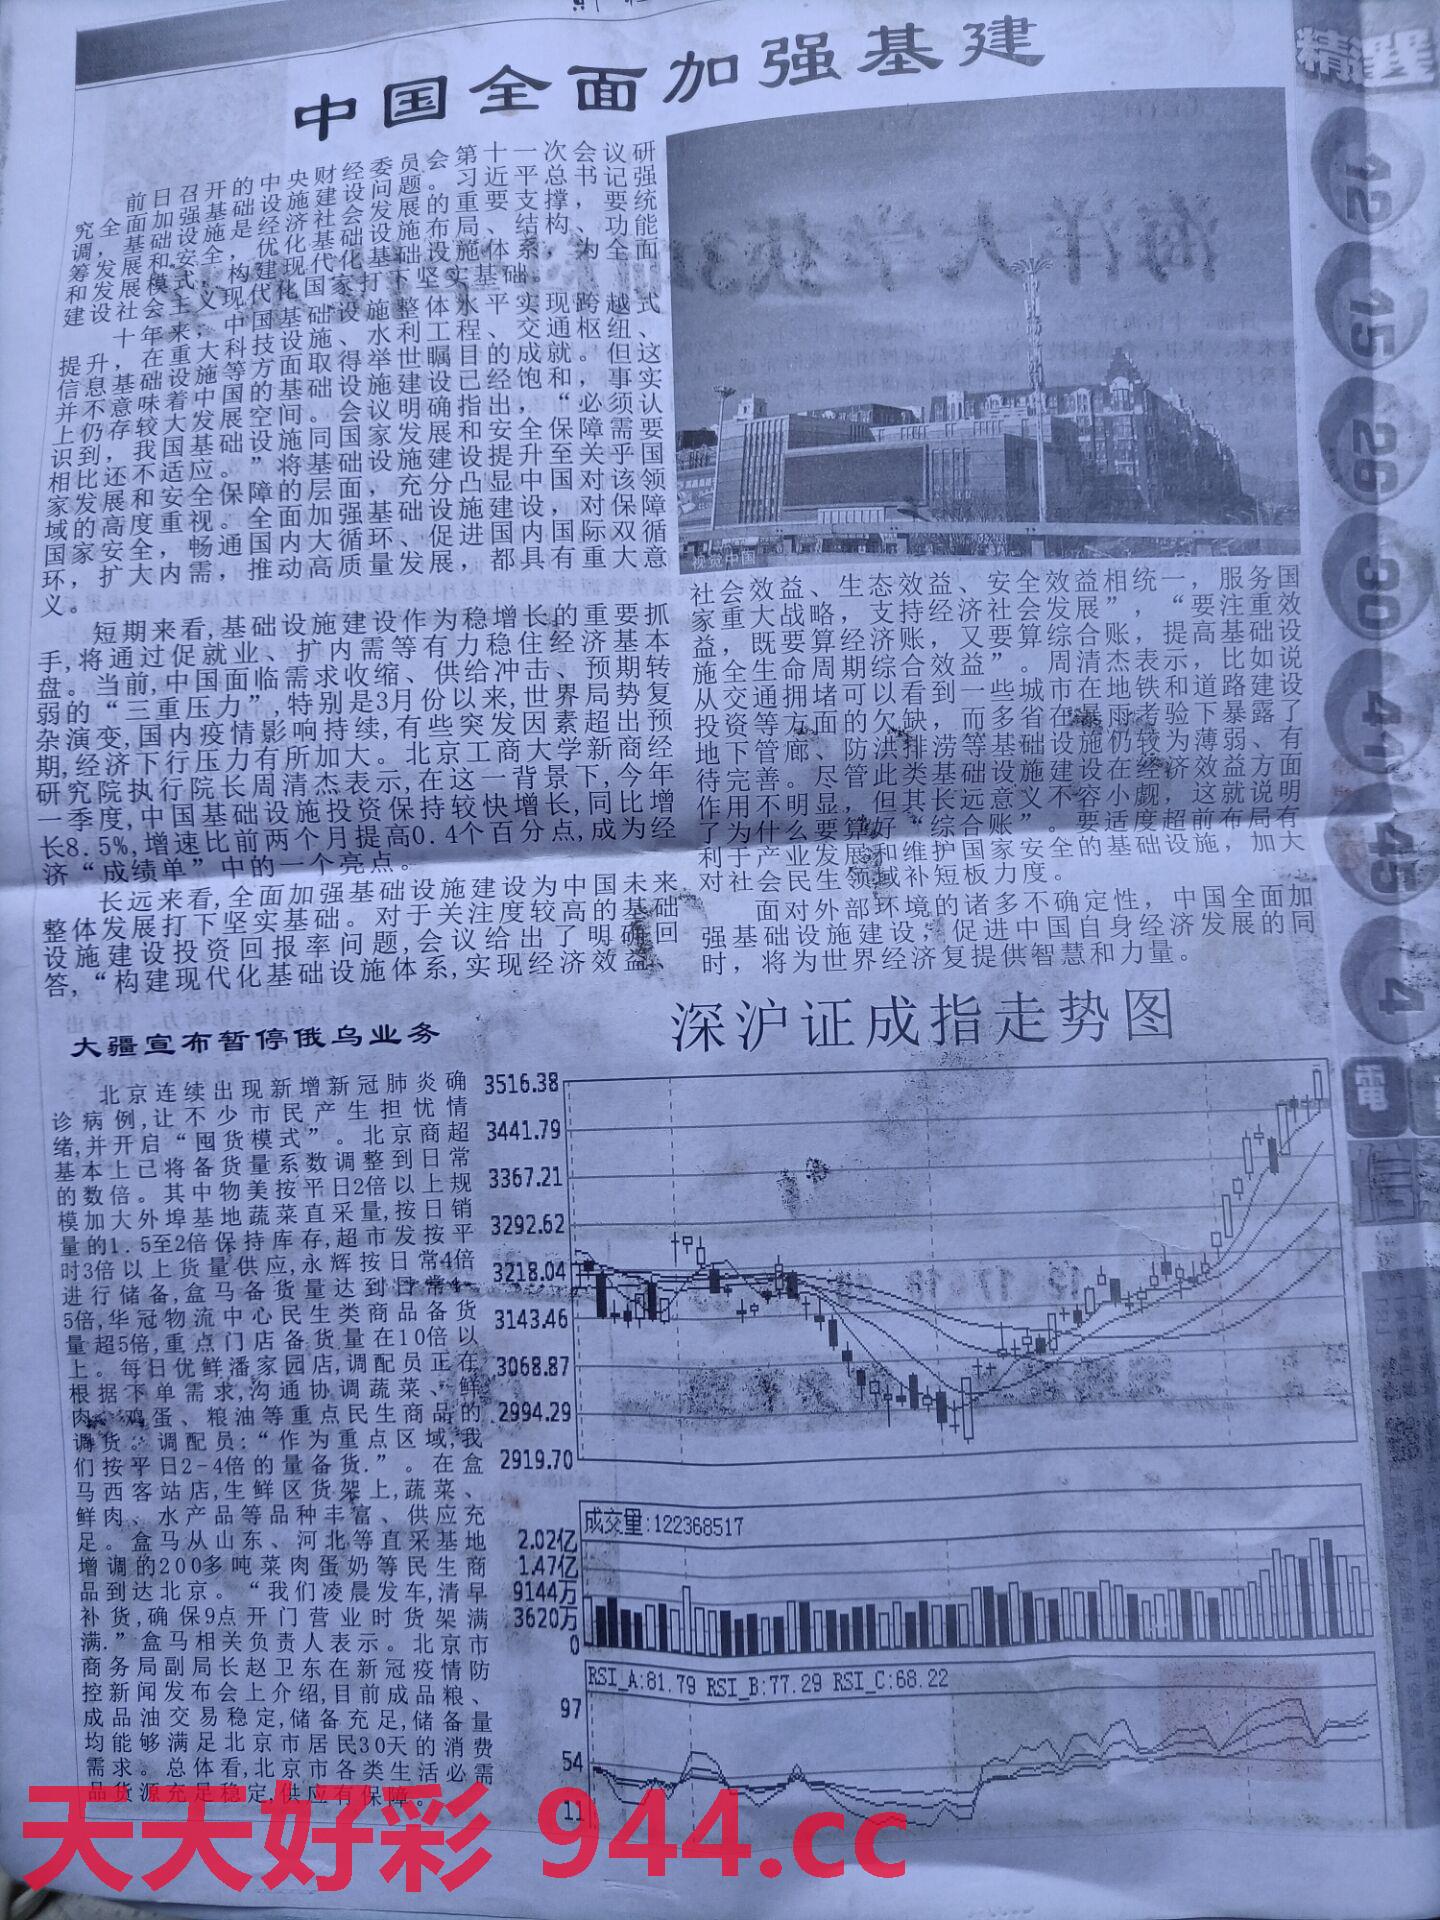 中国全面加强基建
前日召开的中央财经委员会第十一次会议研
究全面加强基础设施建设问题。习近平总书记强
调,基础设施是经济社会发展的重要支撑,要统
筹发展和安全,优化基础设施布局、结构、功能
和发展模式,构建现代化基础设施体系,为全面
建设社会主义现代化国家打下坚实基础。
十年来,中国基础设施整体水平实现跨越式
提升,在重大科技设施、水利工程、交通枢纽、
信息基础设施等方面取得举世瞩目的成就。但这
并不意味着中国的基础设施建设已经饱和,事实
上仍存较大发展空间。会议明确指出,“必须认
识到,我国基础设施同国家发展和安全保障需要
相比还不适应。”将基础设施建设提升至关乎国
家发展和安全保障的层面,充分凸显中国对该领
域的高度重视。全面加强基础设施建设,对保障
国家安全,畅通国内大循环、促进国内国际双循
环,扩大内需,推动高质量发展,都具有重大意
义。
短期来看,基础设施建设作为稳增长的重要抓
手,将通过促就业、扩内需等有力稳住经济基本
盘。当前,中国面临需求收缩、供给冲击、预期转
弱的“三重压力”,特别是3月份以来,世界局势复
杂演变,国内疫情影响持续,有些突发因素超出预
期,经济下行压力有所加大。北京工商大学新商经
研究院执行院长周清杰表示,在这一背景下,今年
一季度,中国基础设施投资保持较快增长,同比增
长8.5%,增速比前两个月提高0.4个百分点,成为经
济“成绩单”中的一个亮点。
长远来看,全面加强基础设施建设为中国未来
整体发展打下坚实基础。对于关注度较高的基础
设施建设投资回报率问题,会议给出了明确回
答,“构建现代化基础设施体系,实现经济效益、
视觉中国
社会效益、生态效益、安全效益相统一,服务国
家重大战略,支持经济社会发展”,“要注重效
益,既要算经济账,又要算综合账,提高基础设
施全生命周期综合效益”。周清杰表示,比如说
从交通拥堵可以看到一些城市在地铁和道路建设
投资等方面的欠缺,而多省在暴雨考验下暴露了
地下管廊、防洪排涝等基础设施仍较为薄弱、有
待完善。尽管此类基础设施建设在经济效益方面
作用不明显,但其长远意义不容小觑,这就说明
了为什么要算好“综合账”。要适度超前布局有
利于产业发展和维护国家安全的基础设施,加大
对社会民生领域补短板力度。
面对外部环境的诸多不确定性,中国全面加
强基础设施建设,促进中国自身经济发展的同
时,将为世界经济复提供智慧和力量。
大疆宣布暂停俄乌业务
北京连续出现新增新冠肺炎确
诊病例,让不少市民产生担忧情
绪,并开启“囤货模式”。北京商超
基本上已将备货量系数调整到日常
的数倍。其中物美按平日2倍以上规
模加大外埠基地蔬菜直采量,按日销
量的1.5至2倍保持库存,超市发按平
时3倍以上货量供应,永辉按日常4倍
进行储备,盒马备货量达到日常4-
5倍,华冠物流中心民生类商品备货
量超5倍,重点门店备货量在10倍以
上。每日优鲜潘家园店,调配员正在
根据下单需求,沟通协调蔬菜、鲜
肉、鸡蛋、粮油等重点民生商品的
调货。调配员:“作为重点区域,我
们按平日2-4倍的量备货.”。在盒
马西客站店,生鲜区货架上,蔬菜、
鲜肉、水产品等品种丰富、供应充
足。盒马从山东、河北等直采基地
增调的200多吨菜肉蛋奶等民生商
品到达北京。“我们凌晨发车,清早
补货,确保9点开门营业时货架满
满.”盒马相关负责人表示。北京市
商务局副局长赵卫东在新冠疫情防
控新闻发布会上介绍,目前成品粮、
成品油交易稳定,储备充足,储备量
均能够满足北京市居民30天的消费
需求。总体看,北京市各类生活必需
品货源充足稳定,供应有保障。
深沪证成指走势图
3516.38
3441.79
3367.21
3292.62
3218.04
3143.46
3068.87
2994.29
2919.70
成交量:122368517
2.02亿
1.47亿
9144万
3620万
0
RSI_A:81.79 RSI_B:77.29 RSI_C:68.22
97
54
11
天天好彩 944.cc